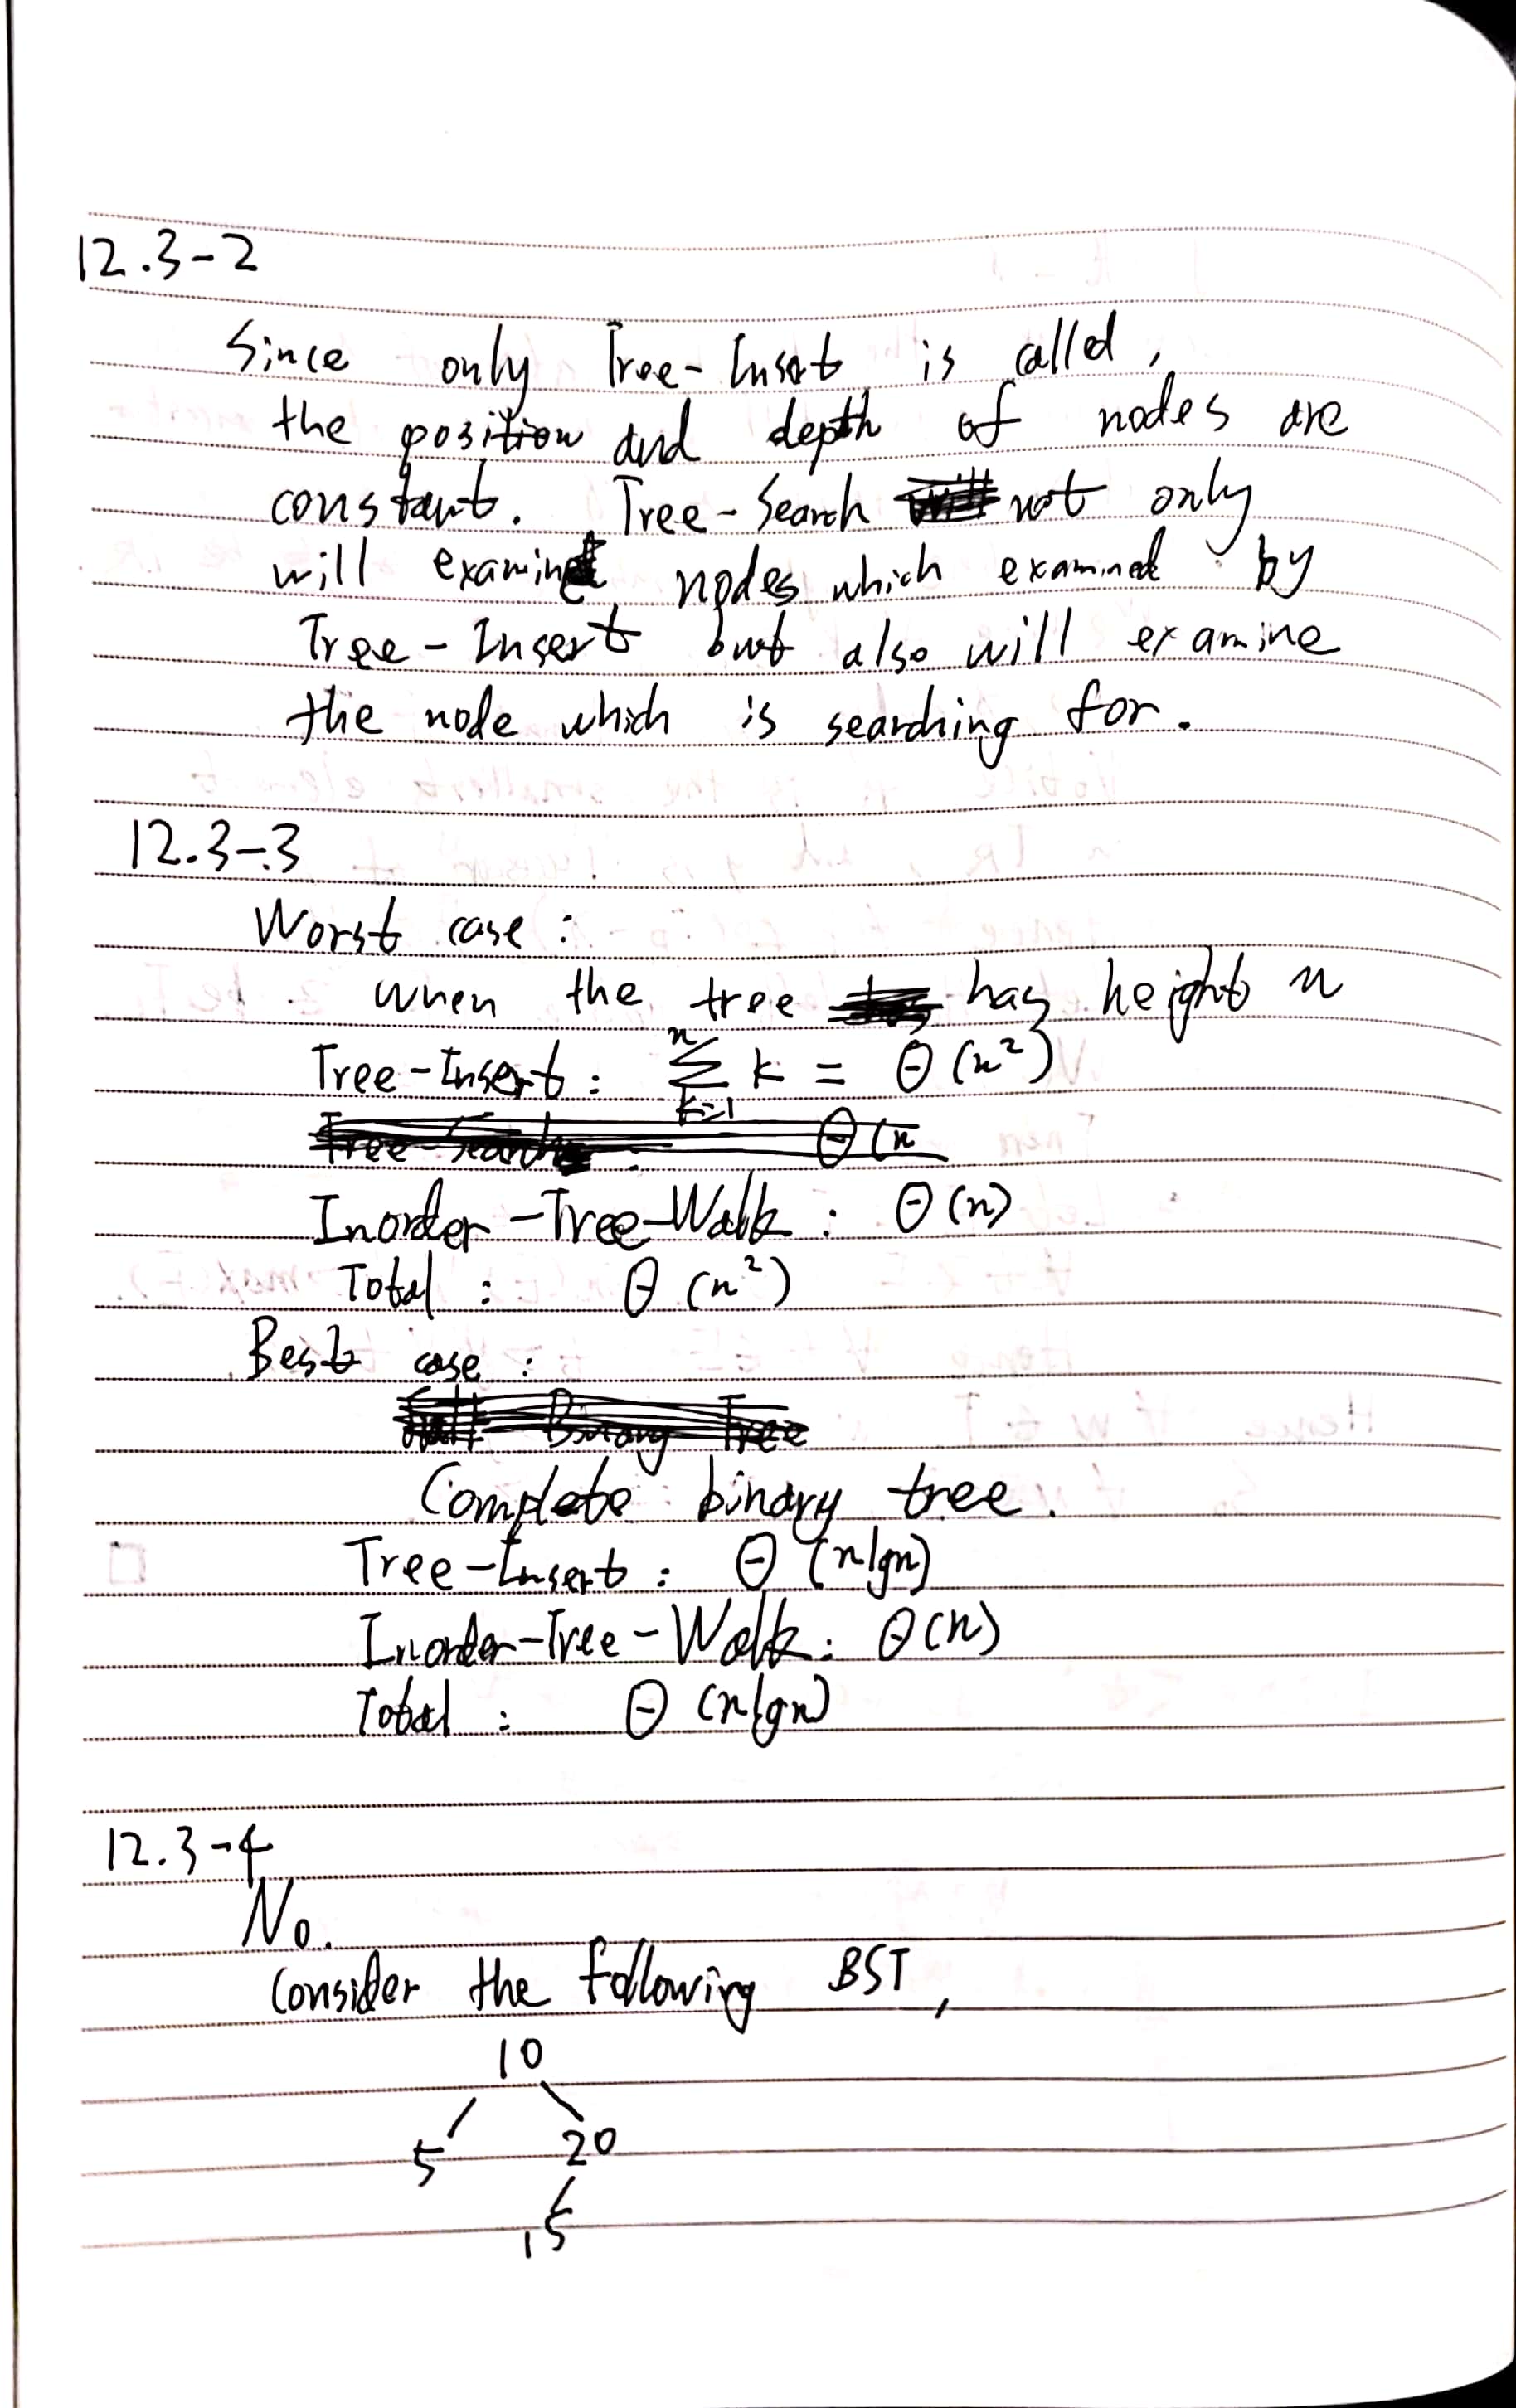 12.3-2
Since only Tree-Insert is called,
the position and depth of nodes are
constant. Tree-Search not only
will examine nodes which examined by
Tree-Insert but also will examine
the node which is searching for.
12.3-3
Worst case :
when the tree has height n
Tree-Insert : \sum_{k=1}^{n} k = Θ(n²)
Inorder-Tree-Walk : Θ(n)
Total : Θ(n²)
Best case :
Complete binary tree.
Tree-Insert : Θ(n lg n)
Inorder-Tree-Walk : Θ(n)
Total : Θ(n lg n)
12.3-4
No.
Consider the following BST,
10
5 20
15